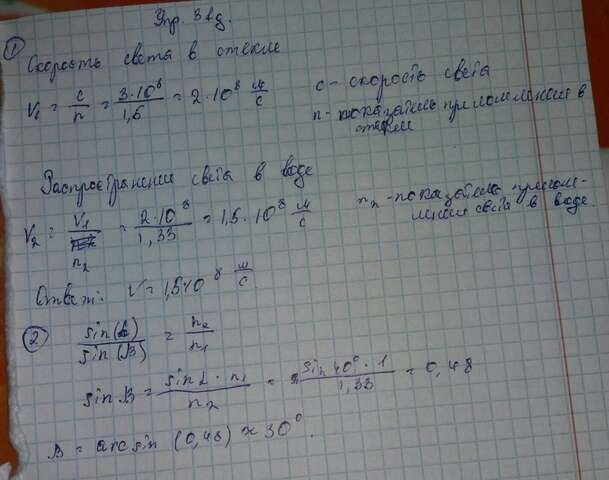 Упр. 3 вд.
① Скорость света в стекле
V₁ = c/n = 3·10⁸/1,5 = 2·10⁸ м/с
c - скорость света
n - показатель преломления в
стекле
Распространение света в воде
V₂ = V₁/n₂ = 2·10⁸/1,33 = 1,5·10⁸ м/с
n₂ - показатель прелом-
ления света в воде
Ответ: V = 1,5·10⁸ м/с
② sin(L)/sin(B) = n₂/n₁
sin B = sin L · n₁/n₂ = sin 40° · 1/1,33 = 0,48
B = arcsin (0,48) ≈ 30°.